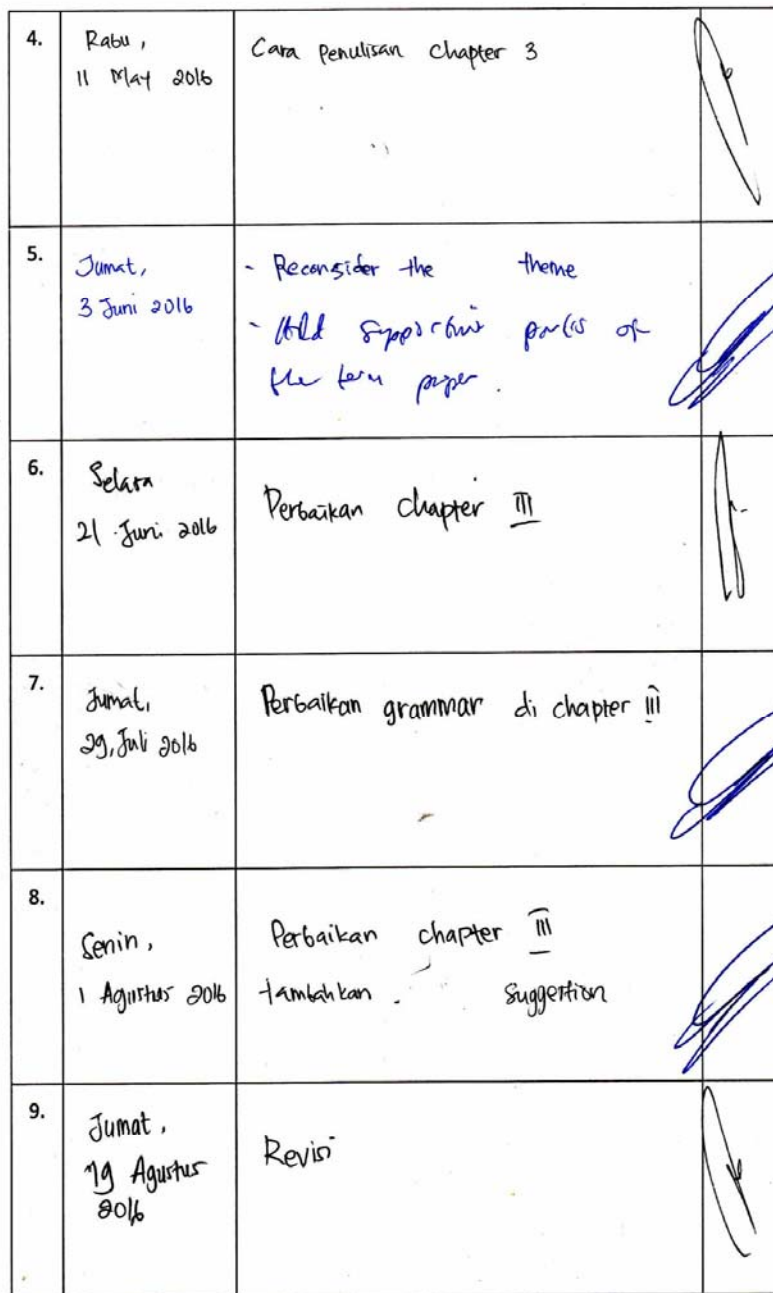 4.
Rabu,
11 May 2016
Cara Penulisan chapter 3
5.
Jumat,
3 Juni 2016
- Reconsider the theme
- Add supportive parts of
the term paper.
6.
Selasa
21 Juni 2016
Perbaikan chapter III
7.
Jumat,
29, Juli 2016
Perbaikan grammar di chapter III
8.
Senin,
1 Agustus 2016
Perbaikan chapter III
tambahkan suggestion
9.
Jumat,
19 Agustus
2016
Revisi